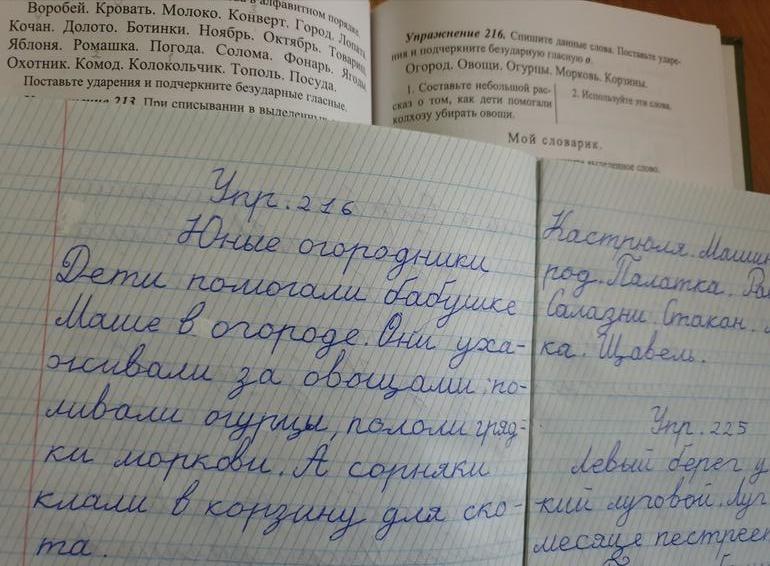 в алфавитном порядке.
Воробей. Кровать. Молоко. Конверт. Город. Лопата.
Кочан. Долото. Ботинки. Ноябрь. Октябрь. Товарищ.
Яблоня. Ромашка. Погода. Солома. Фонарь. Ягоды.
Охотник. Комод. Колокольчик. Тополь. Посуда.
Поставьте ударения и подчеркните безударные гласные.
213. При списывании в выделенных
Упражнение 216. Спишите данные слова. Поставьте ударе-
ния и подчеркните безударную гласную о.
Огород. Овощи. Огурцы. Морковь. Корзины.
1. Составьте небольшой рас-
сказ о том, как дети помогали
колхозу убирать овощи.
2. Используйте эти слова.
Мой словарик.
выделенное слово.
Упр. 216
Юные огородники
Дети помогали бабушке
Маше в огороде. Они уха-
живали за овощами: по-
ливали огурцы, пололи гряд-
ки моркови. А сорняки
клали в корзину для ско-
та.
Кастрюля. Машин
род. Палатка.
Салазки. Стакан.
ка. Щавель.
Упр. 225
Левый берег
кий луговой. Луг
месяце пестреет